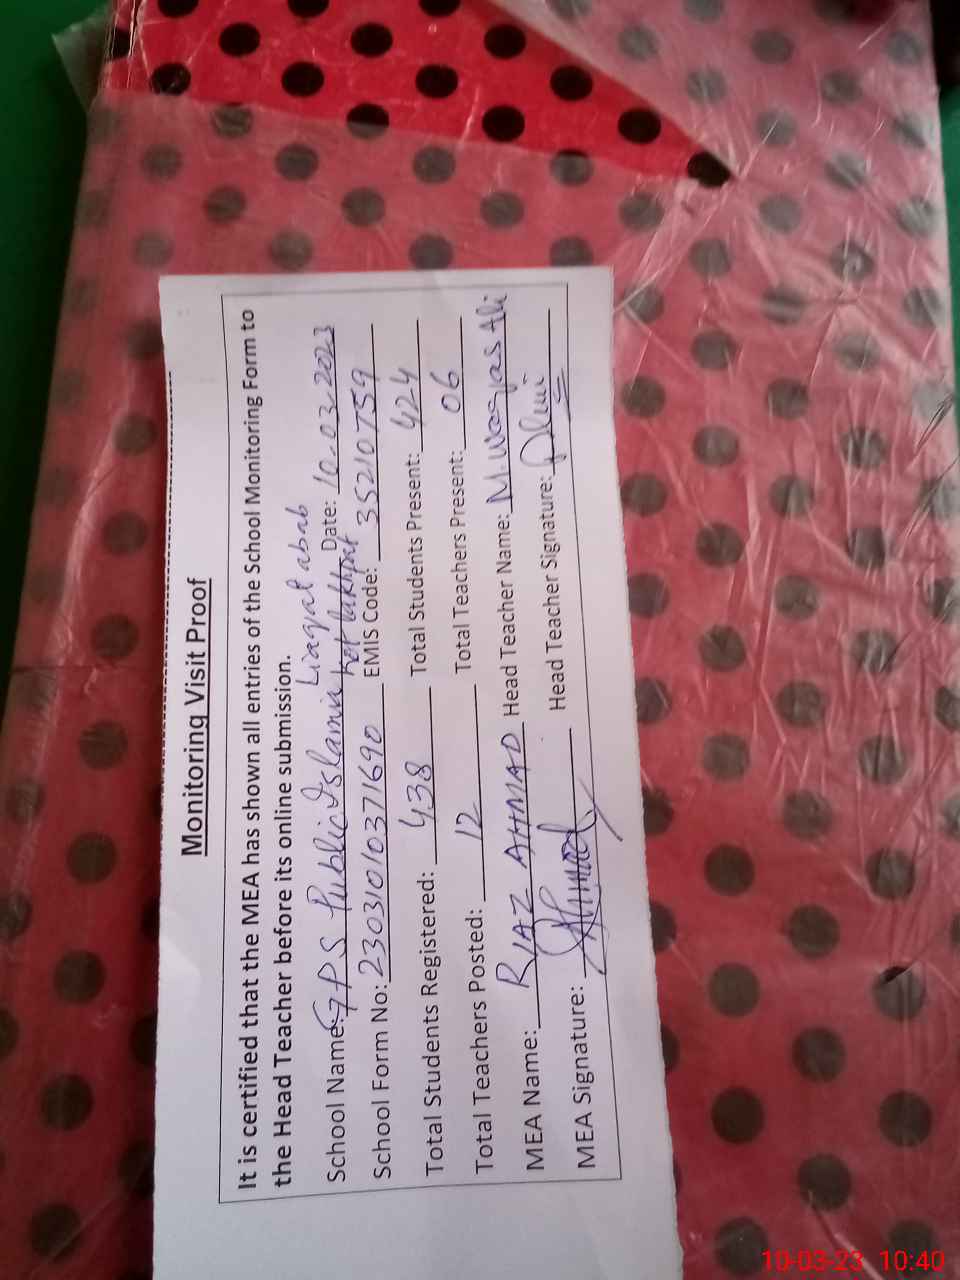 Monitoring Visit Proof
It is certified that the MEA has shown all entries of the School Monitoring Form to
the Head Teacher before its online submission.
School Name: GPS Public Islamia Liaqat abab Kot lakhpat Date: 10-03-2023
School Form No: 2303101037169 0 EMIS Code: 35210759
Total Students Registered: 438 Total Students Present: 424
Total Teachers Posted: 12 Total Teachers Present: 06
MEA Name: RIAZ AHMAD Head Teacher Name: M. Waqas Ali
MEA Signature: Ahmad Head Teacher Signature:
10-03-23 10:40